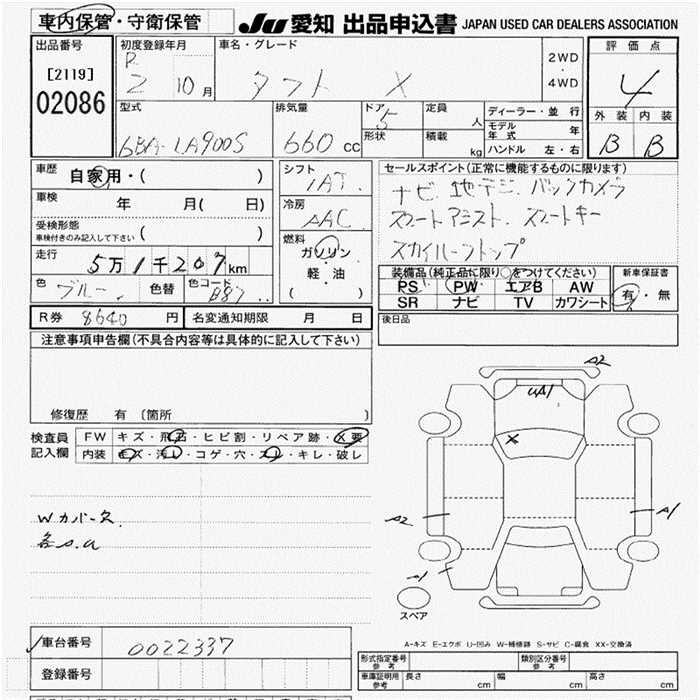 車内保管・守衛保管 JU 愛知 出品申込書 JAPAN USED CAR DEALERS ASSOCIATION
出品番号 初度登録年月 車名・グレード 2WD・4WD 評価点
[2119] R 2 10月 タフト X 4
02086
型式 排気量 ドア 定員 ディーラー・並 行 外装 内装
6BA-LA900S 660 cc 5 人 モデル年式 年 B B
形状 積載 kg ハンドル 左・右
車歴 自家用・( ) シフト セールスポイント(正常に機能するものに限ります)
IAT ナビ 地デジ バックカメラ
車検 年 月( 日) 冷房 スマートアシスト スマートキー
受検形態 AAC スカイルーフトップ
車検付きのみ記入して下さい ( )
燃料 ガソリン
走行 5万1千207km 軽・油
( )
装備品(純正品に限り○をつけてください) 新車保証書
PS PW エアB AW 有・無
SR ナビ TV カワシート
色 ブルー 色替 色コード B87
R券 8640 円 名変通知期限 月 日 後日品
注意事項申告欄(不具合内容等は具体的に記入して下さい)
修復歴 有 (箇所 )
検査員記入欄 FW キズ・飛石・ヒビ割・リペア跡・X要
内装 キズ・汚レ・コゲ・穴・スレ・キレ・破レ
Wカバー欠
各S.a
A2
UA1
X
A2
A1
A1
スペア
A-キズ E-エクボ U-凹み W-補修跡 S-サビ C-腐食 XX-交換済
車台番号 0022337
登録番号
形式指定番号 参考 類別区分番号 参考
車庫証明用 参考 長さ cm 幅 cm 高さ cm